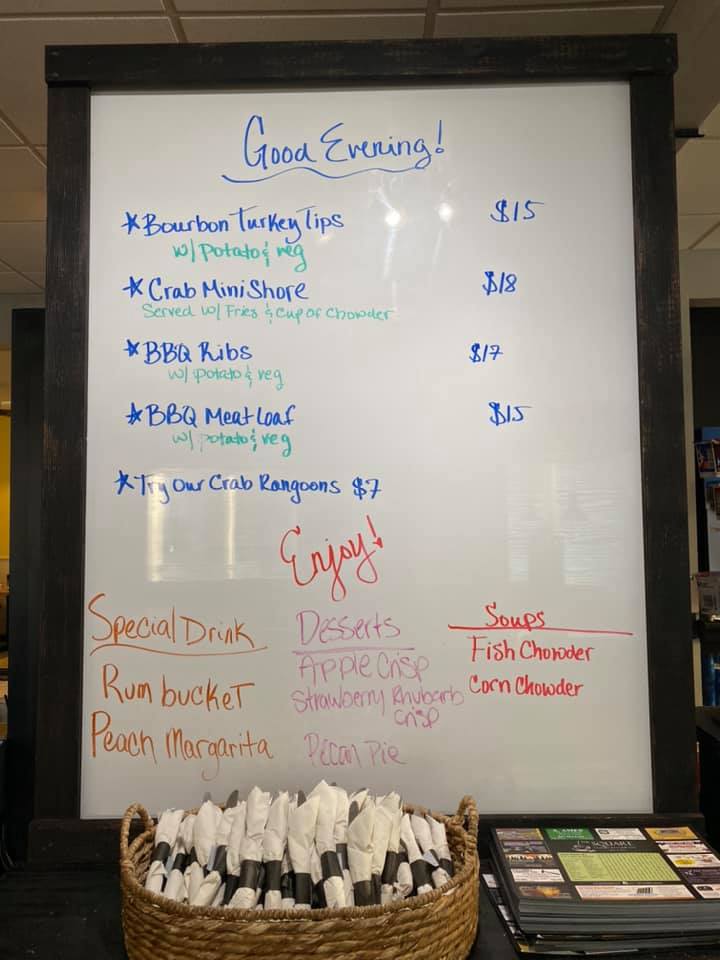 Good Evening!
*Bourbon Turkey Tips $15
w/ potato & veg
*Crab Mini Shore $18
Served w/ Fries & Cup of Chowder
*BBQ Ribs $17
w/ potato & veg
*BBQ Meat Loaf $15
w/ potato & veg
*Try Our Crab Rangoons $7
Enjoy!
Special Drink
Rum bucket
Peach Margarita
Desserts
Apple Crisp
Strawberry Rhubarb
crisp
Pecan Pie
Soups
Fish Chowder
Corn Chowder
SQUARE